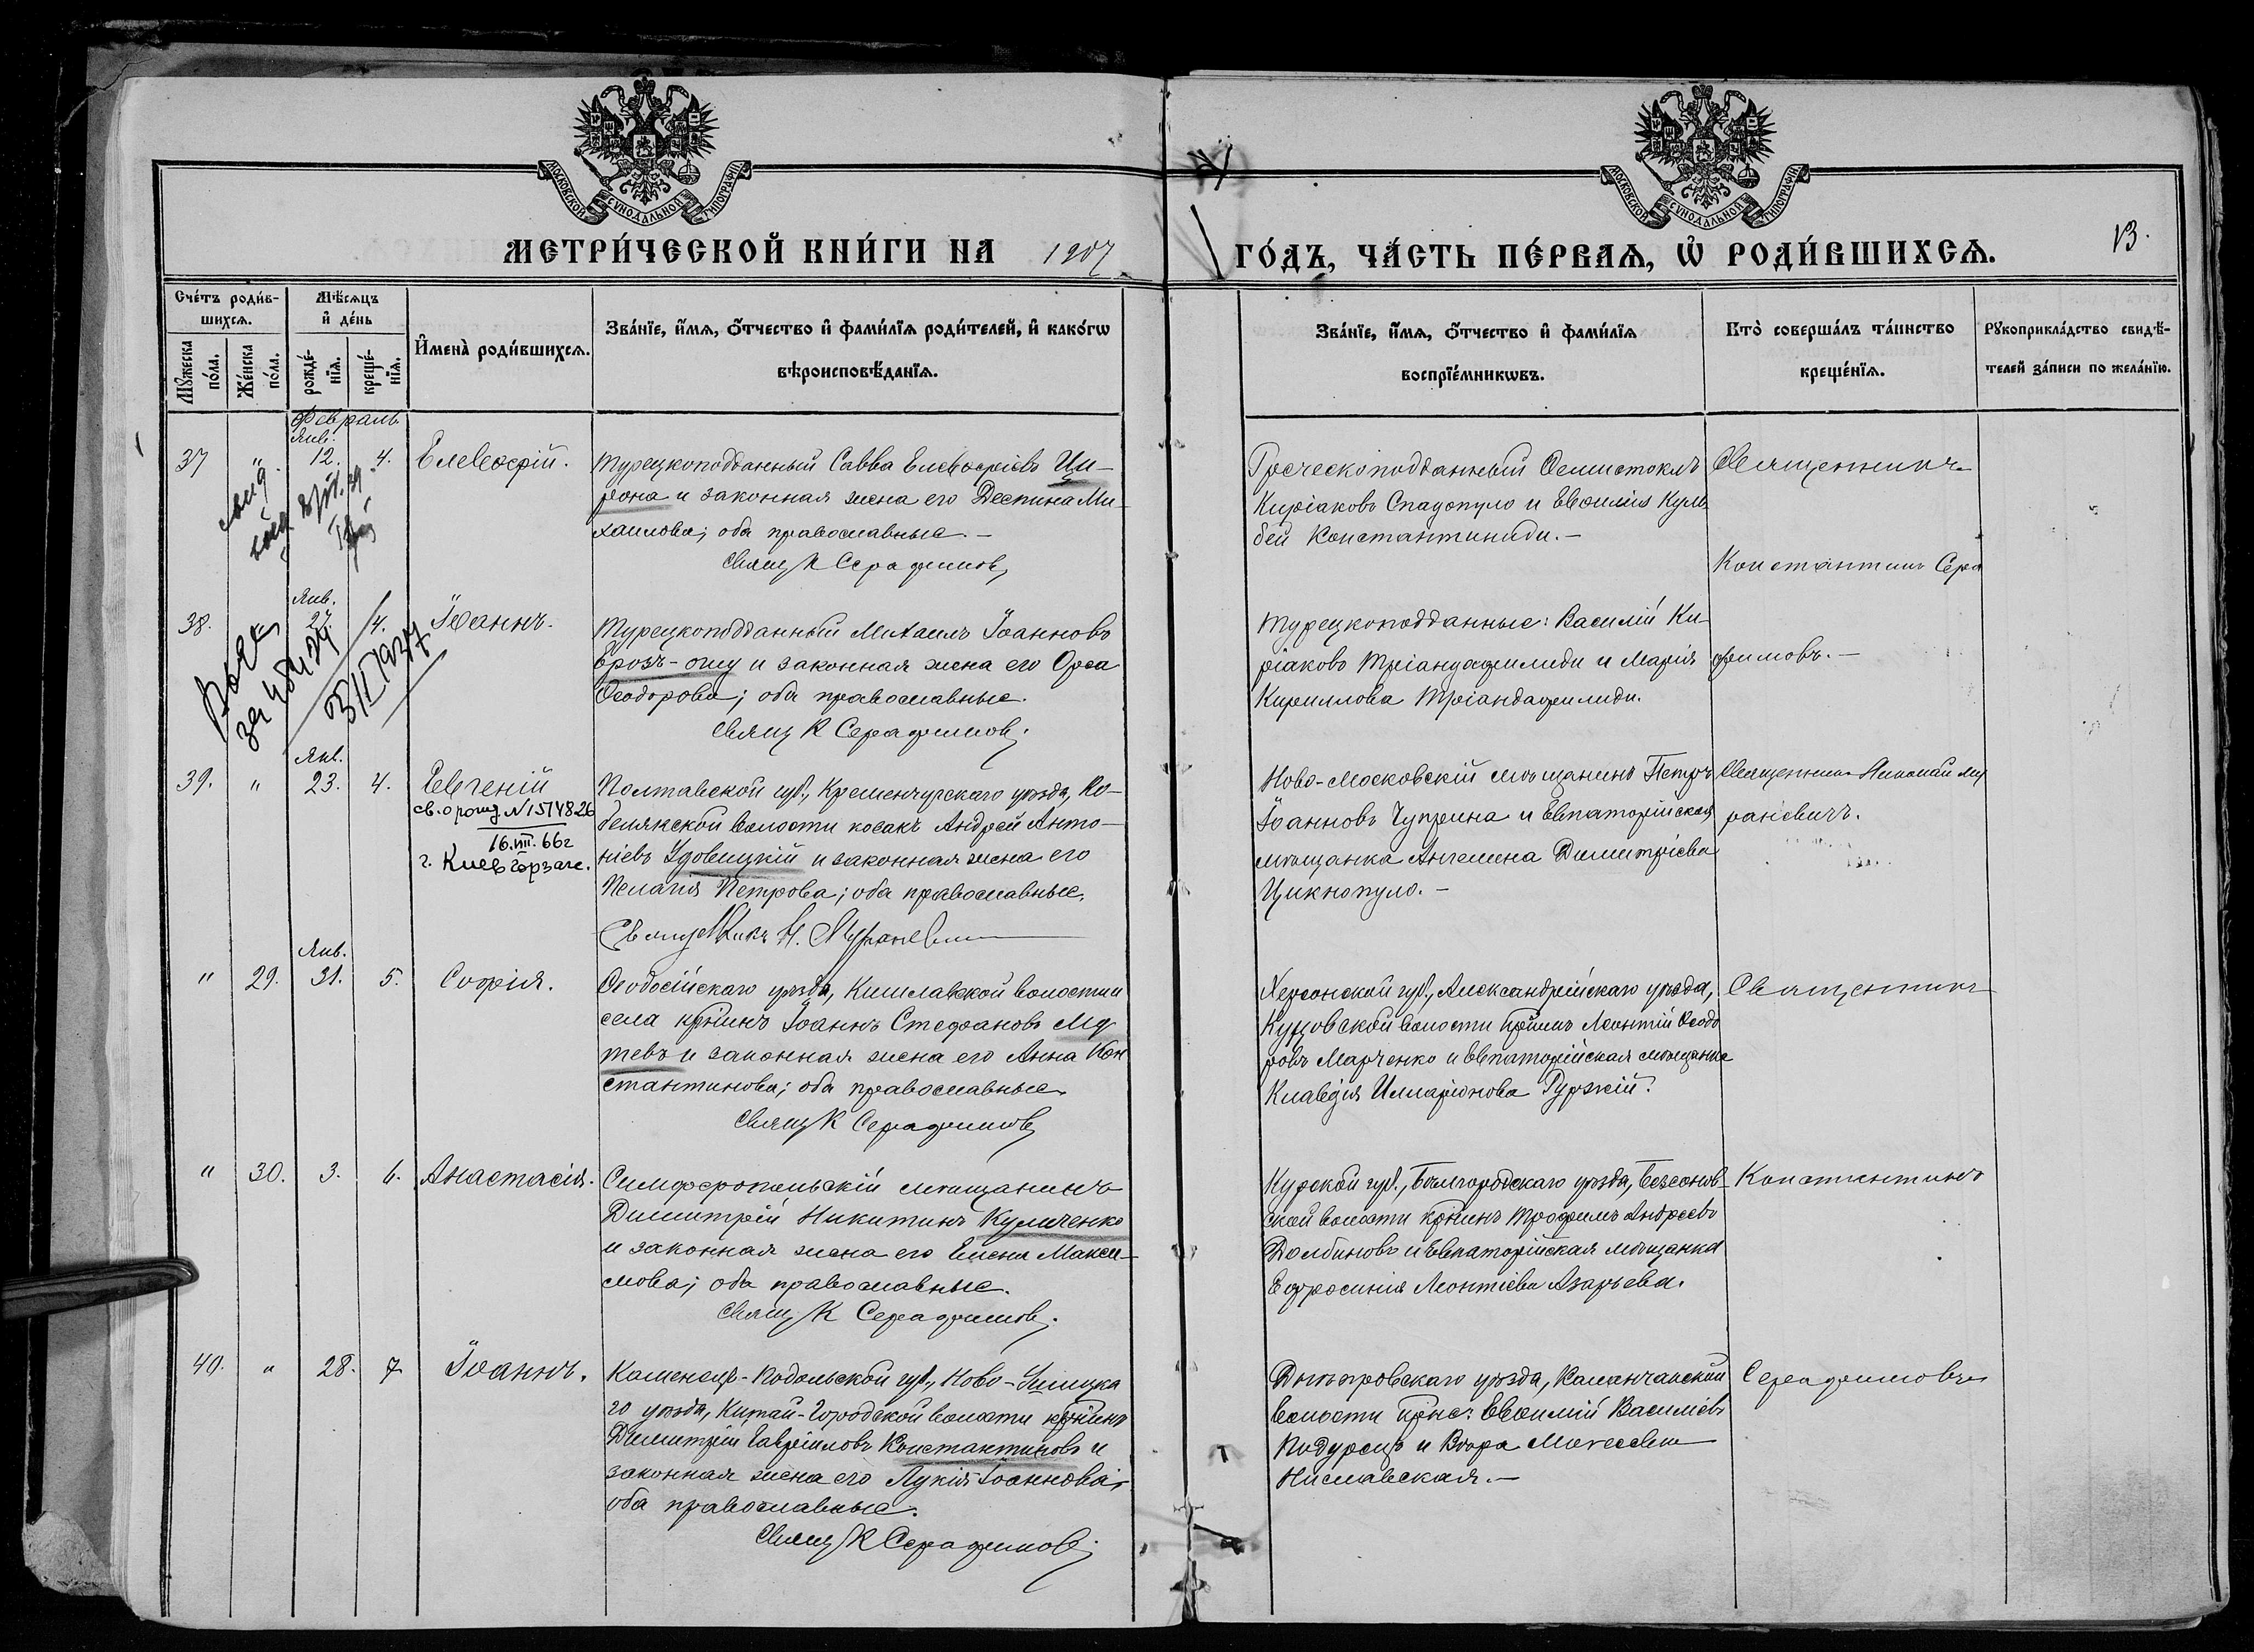 МОСКОВСКОЙ СѴНОДАЛЬНОЙ ТИПОГРАФІИ
МОСКОВСКОЙ СѴНОДАЛЬНОЙ ТИПОГРАФІИ
МЕТРИ́ЧЕСКОЙ КНИ́ГИ НА 1907
ГО́ДЪ, ЧА́СТЬ ПЕ́РВАѦ, Ѽ РОДИ́ВШИХСѦ.
13.
Сче́тъ роди́в-
шихсѧ.
Мꙋ́жеска
по́ла.
Же́нска
по́ла.
Мѣ́сѧцъ
и҆ де́нь
рожде́-
нїѧ.
креще́-
нїѧ.
И҆мена̀ роди́вшихсѧ.
Зва́нїе, и҆́мѧ, о҆́тчество и҆ фами́лїѧ роди́телей, и҆ како́гѡ
вѣроисповѣ́данїѧ.
Зва́нїе, и҆́мѧ, о҆́тчество и҆ фами́лїѧ
воспрїе́мникѡвъ.
Кто̀ соверша́лъ та́инство
креще́нїѧ.
Рꙋкоприкла́дство свидѣ́-
телей за́писи по жела́нїю.
Февраль
Янв.
37 " 12. 4. Елевѳерій.
Турецкоподданный Савва Елевѳеріевъ Ци-
рона и законная жена его Деспина Ми-
хаилова; оба православные. –
Свящ К Серафимов
Греческоподданный Ѳемистоклъ
Киріаковъ Спадопуло и Евѳимія Куль
бей Константиниди. –
Священникъ
Константинъ Сера
Янв.
38. 27. 4. Іоаннъ.
31/II 1937
Турецкоподданный Михаилъ Іоанновъ
орозъ-оглу и законная жена его Ороа
Ѳеодорова; оба православные.
Свящ К Серафимов.
Турецкоподданные: Василій Ки-
ріаковъ Тріандафилиди и Марія
Кириллова Тріандафилиди.
фимовъ. –
Янв.
39. " 23. 4. Евгеній
св. о рожд N 1574826
16.VIII.66г
г. Киев Горзагс.
Полтавской губ., Кременчугскаго уѣзда, Ко-
белякской волости козакъ Андрей Анто-
ніевъ Удовицкій и законная жена его
Пелагія Петрова; оба православные.
Священникъ Н. Мураневич
Ново-Московскій мѣщанинъ Петръ
Іоанновъ Чуприна и Евпаторійская
мѣщанка Ангелина Димитріева
Цикнопуло. –
Священникъ Николай Му
раневичъ.
Янв.
" 29. 31. 5. Софія.
Ѳеодосійскаго уѣзда, Кишлавской волости и
села крнинъ Іоаннъ Стефановъ Му
тевъ и законная жена его Анна Кон
стантинова; оба православные.
Свящ К Серафимов
Херсонской губ., Александрійскаго уѣзда,
Куцовской волости крнинъ Леонтій Ѳеодо
ровъ Марченко и Евпаторійская мѣщанка
Клавдія Илларіонова Гуржій.
Священникъ
" 30. 3. 6. Анастасія.
Симферопольскій мѣщанинъ
Димитрій Никитинъ Куличенко
и законная жена его Елена Макси-
мова; оба православные.
Свящ К Серафимов.
Курской губ., Бѣлгородскаго уѣзда, Безсонов-
ской волости крнинъ Трофимъ Андреевъ
Долбиновъ и Евпаторійская мѣщанка
Ефросинія Леонтіева Азарьева.
Константинъ
40. " 28. 7 Іоаннъ.
Каменецъ-Подольской губ., Ново-Ушицка
го уѣзда, Китай-Городской волости крнинъ
Димитрій Гавріиловъ Константиновъ и
законная жена его Лукія Іоаннова;
оба православные.
Свящ К Серафимов.
Днѣпровскаго уѣзда, Каланчакской
волости крне: Евѳимій Василіевъ
Подурецъ и Вѣра Моисеева
Ниславская. –
Серафимовъ